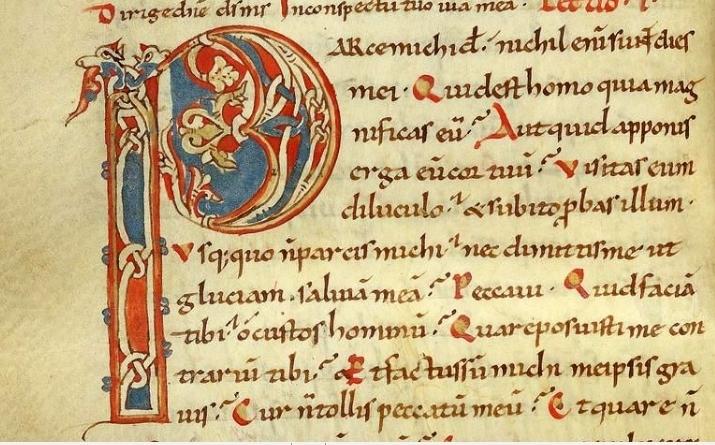 Dirige dn̄e ds̄ ms̄ In conspectu tuo uia mea. Lectio. I.
PARce michi dn̄e. nichil eni sunt dies
mei. Quid est homo quia mag
nificas eū. Aut quid apponis
erga eū cor tuū. Visitas eum
diluculo. & subito ꝓbas illum.
Vsq;quo n̄ parcis michi. nec dimittis me ut
gluciam saliuā meā. Peccaui. Quid faciā
tibi. o custos hominū. Quare posuisti me con
trariū tibi. & factus sū michi meipsi gra
uis. Cur n̄ tollis peccatū meū. Et quare n̄